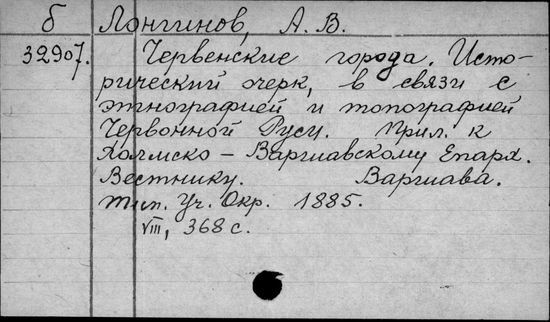 б Лонгинов, А. В.
32907. Червенские города. Исто-
рический очерк, в связи с
этнографией и топографией
Червонной Руси. Прил. к
Холмско-Варшавскому Епарх.
Вестнику. Варшава.
тип. Уч. Окр. 1885.
VIII, 368 с.